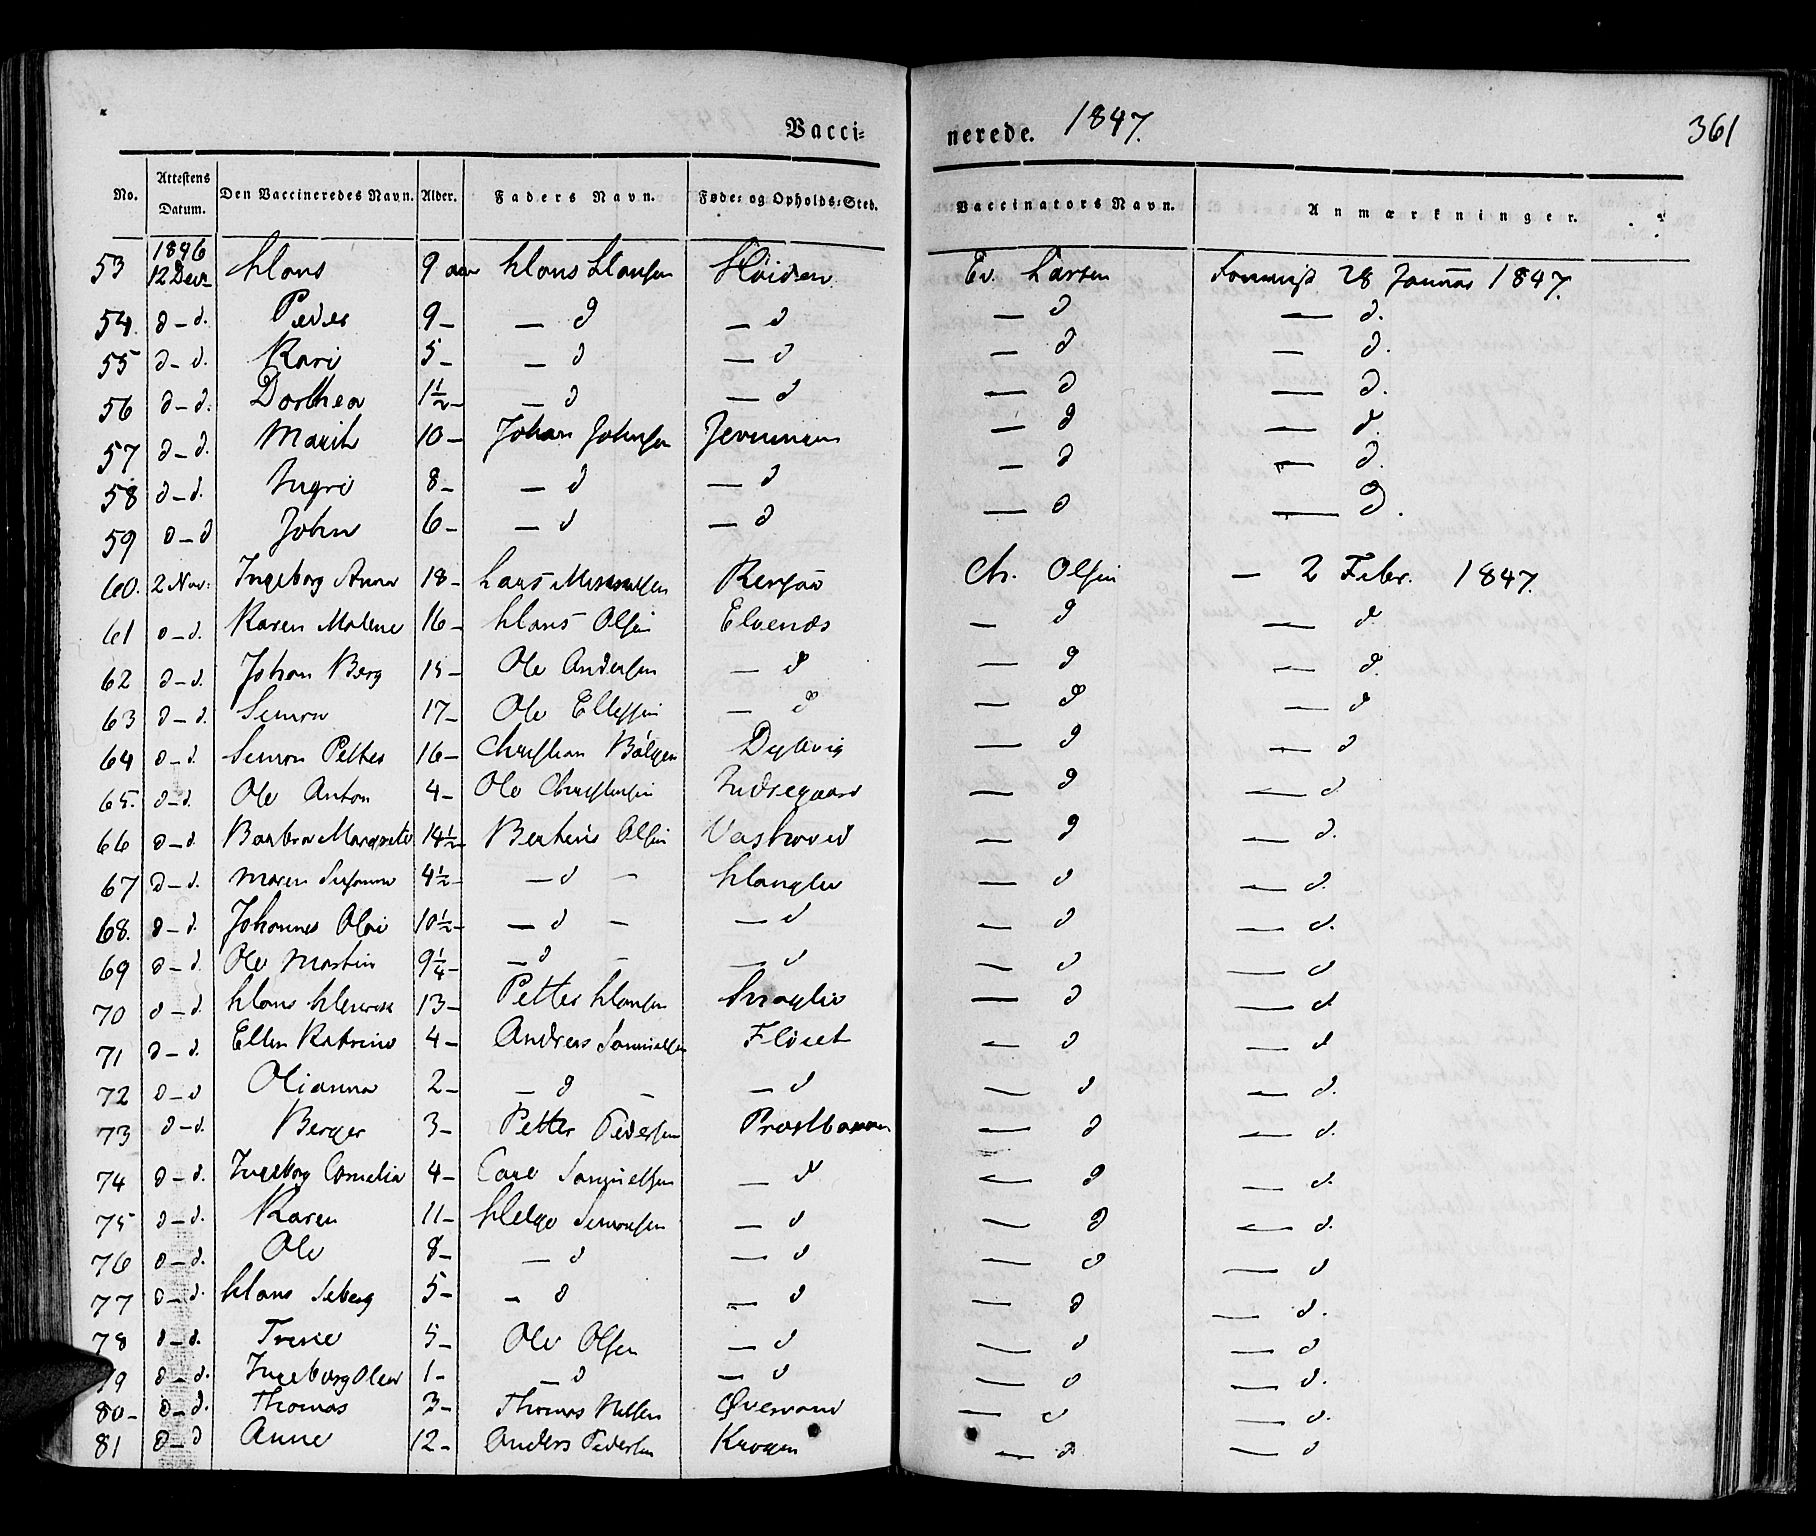 Vacci= nerede. 1847. 361
No. Attestens Datum. Den Vaccineredes Navn. Alder. Faders Navn. Føde= og Opholds=Sted. Vaccinators Navn. Anmærkninger.
53 1846 12 Decr Hans 9 aar Hans Hansen Ev. Larsen 28 Januar 1847.
54. d – d. Peder 9 – — d — d — d — d.
55 d – d. Kari 5 – — d — d — d — d.
56 d – d. Dorthea 1½ – — d — d — d — d.
57 d – d. Marith 10 – Johan Johnsen — d — d.
58 d – d. Ingri 8 – — d — d — d — d.
59 d – d John 6 – — d — d — d — d.
60. 2 Nov: Ingeborg Anna 18 – Lars Ch. Olsen — 2 Febr. 1847.
61 d – d. Karen Malene 16 – Hans Olsen Elvenæs — d — d.
62 d – d. Johan Berg 15 – Ole Andersen — d — d — d.
63 d – d. Simon 17 – Ole Ellefsen — d — d — d
64 d – d. Simon Petter 16 – Christian Bølgen — d — d
65. d – d. Ole Anton 4 – Ole Christensen Indregaard — d — d.
66 d – d. Barbra Margrete 14½ – Berteus Olsen Vashoved — d — d.
67 d – d. Maren Susanna 4½ – — d — Hanglie — d — d.
68. d – d. Johannes Olai 10½ – — d — — d — d — d.
69 d – d. Ole Martin 9¼ – — d — — d — d — d
70 d – d. Hans Henrik 13 – Petter Hansen — d — d.
71 d – d. Ellen Katrine 4 – Andreas Samuelsen Fløiet — d — d
72 d – d Olianna 2 – — d — — d — d — d.
73 d – d. Berger 3 – Petter Pedersen — d — d.
74 d – d. Ingeborg Cornelia 4 – Carl Samuelsen — d — d — d.
75 d – d. Karen 11 – Helge Simonsen — d — d — d.
76 d – d. Ole 8 – — d — d — d — d
77 d – d. Hans Seberg 5 – — d — d — d — d.
78 d – d. Trine 5 – Ole Olsen — d — d — d
79 d – d. Ingeborg Olea 1 – — d — d — d — d.
80 – d – d. Thomas 3 – Thomas Nilsen Øvervand — d — d.
81 d – d Anne 12 – Anders Pedersen Krogen — d — d